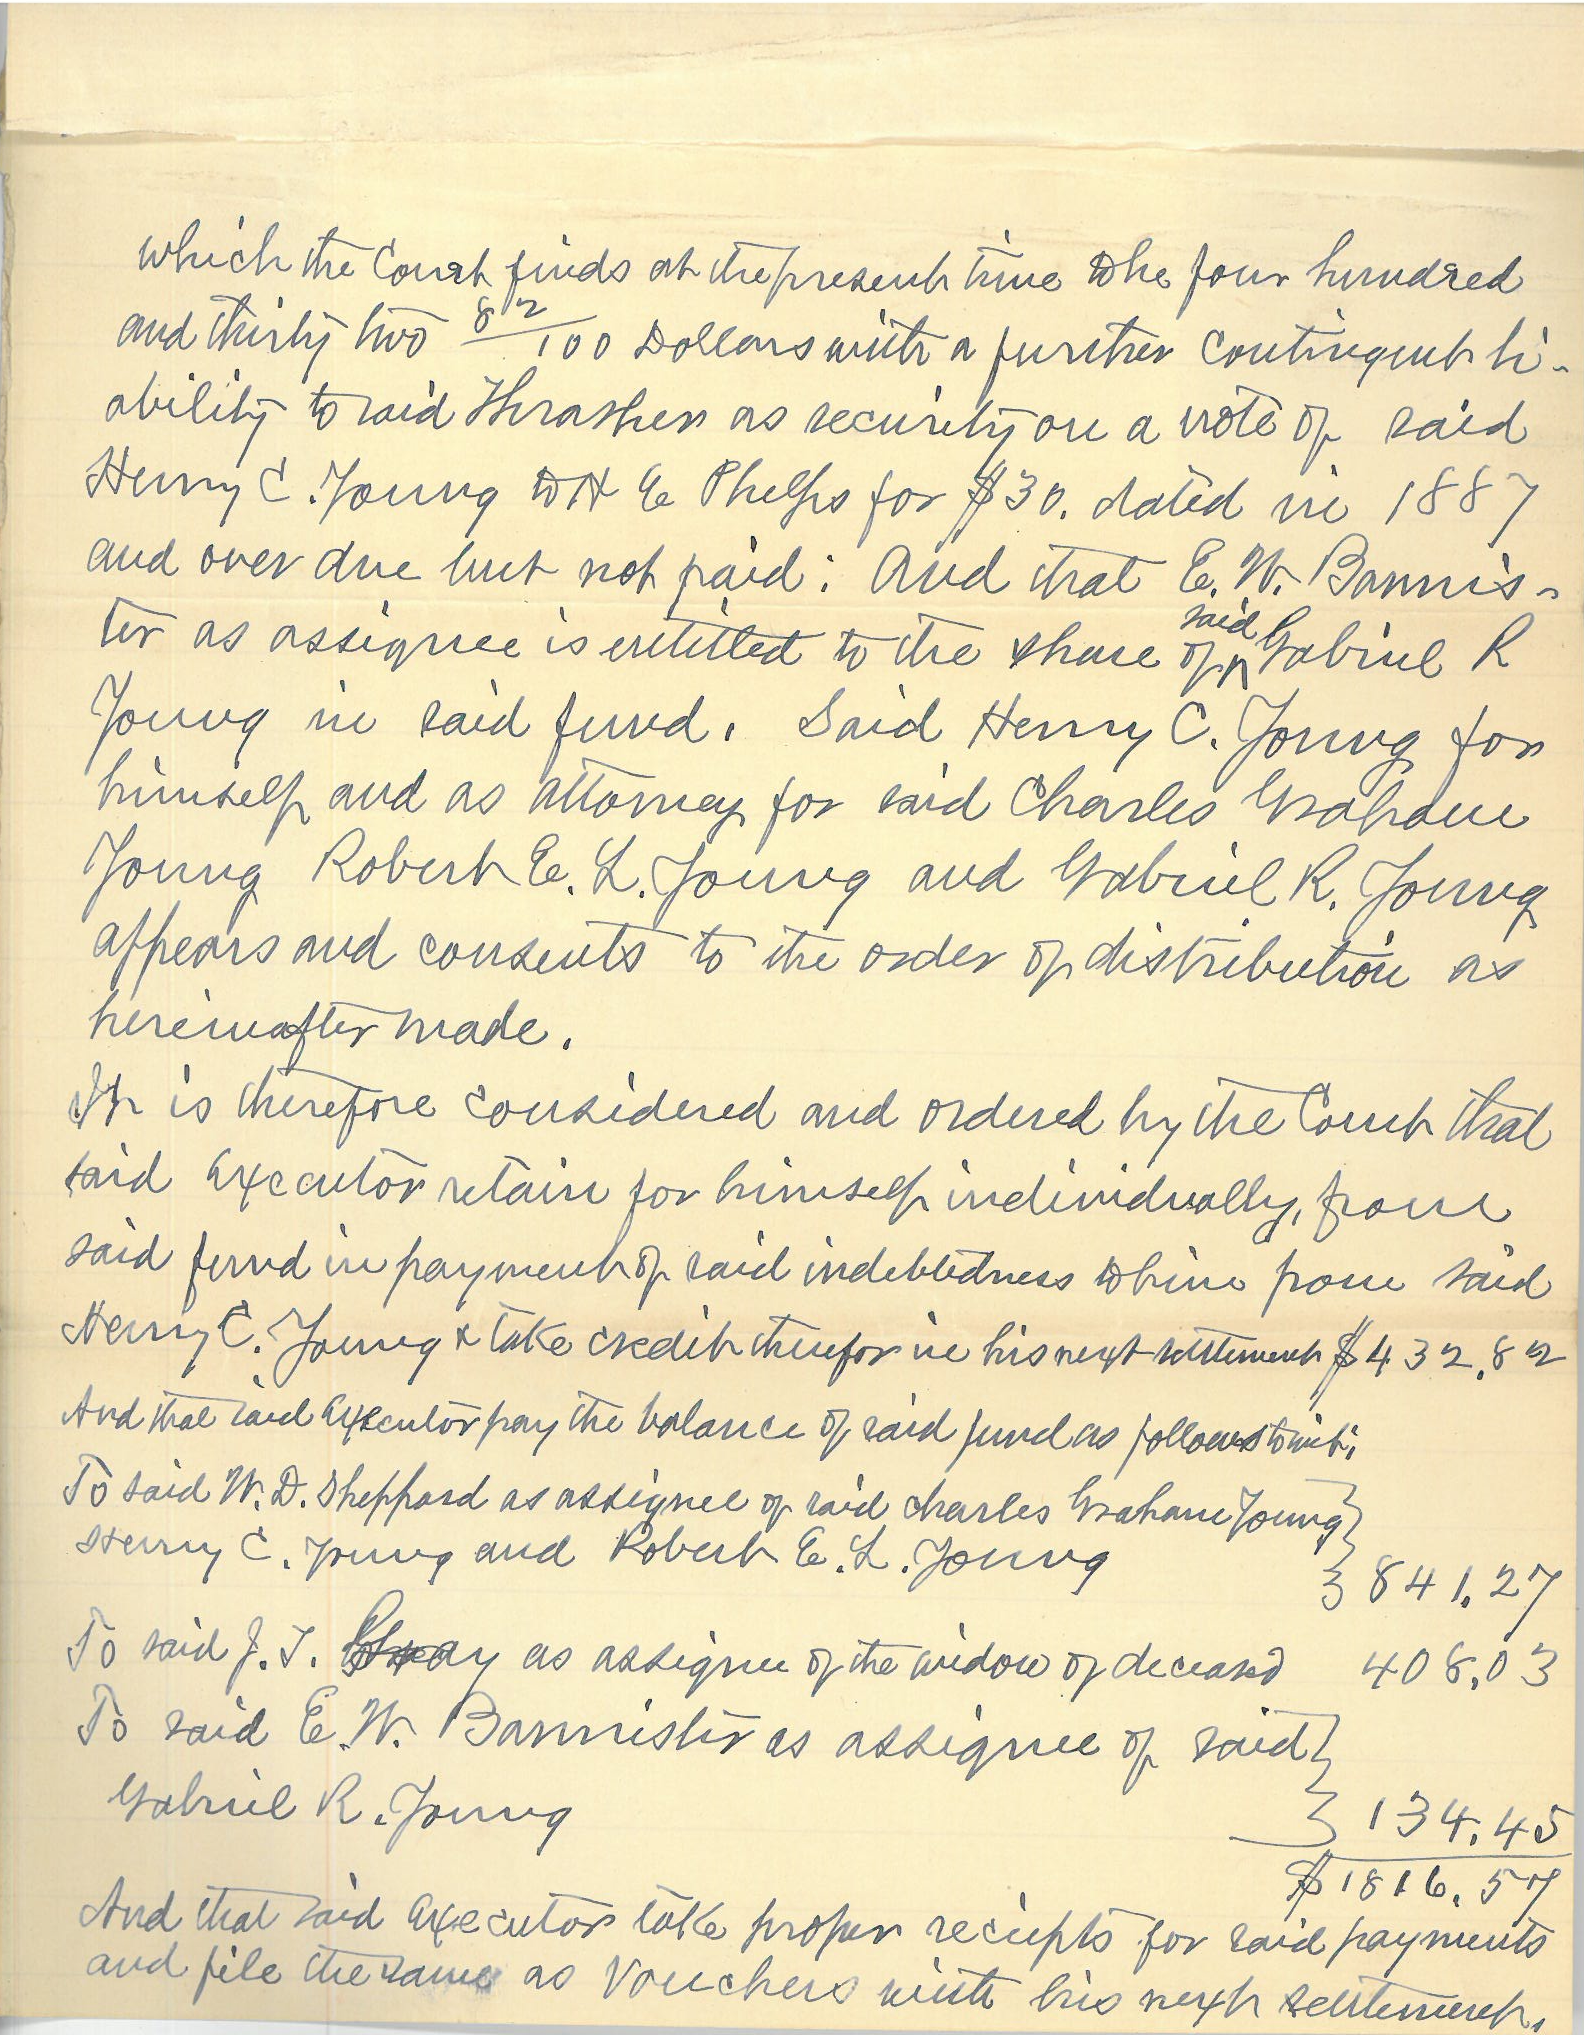 which the Court finds at the present time to be four hundred
and thirty two 82/100 Dollars with a further contingent li-
ability to said Thrasher as security on a note of said
Henry C. Young to H E Phelps for $30. dated in 1887
and over due but not paid: And that E. W. Bannis-
ter as assignee is entitled to the share of said Gabriel R
Young in said fund. Said Henry C. Young for
himself and as attorney for said Charles Graham
Young Robert E. L. Young and Gabriel R. Young
appears and consents to the order of distribution as
hereinafter made.
It is therefore considered and ordered by the Court that
said Executor retain for himself individually, from
said fund in payment of said indebtedness to him from said
Henry C. Young & take credit therefor in his next settlement $432.82
And that said Executor pay the balance of said fund as follows towit:
To said W. D. Sheppard as assignee of said Charles Graham Young
Henry C. Young and Robert E. L. Young 841.27
To said J. T. Gray as assignee of the widow of deceased 408.03
To said E. W. Bannister as assignee of said
Gabriel R. Young 134.45
$1816.57
And that said Executor take proper reciepts for said payments
and file the same as Vouchers with his next settlement.